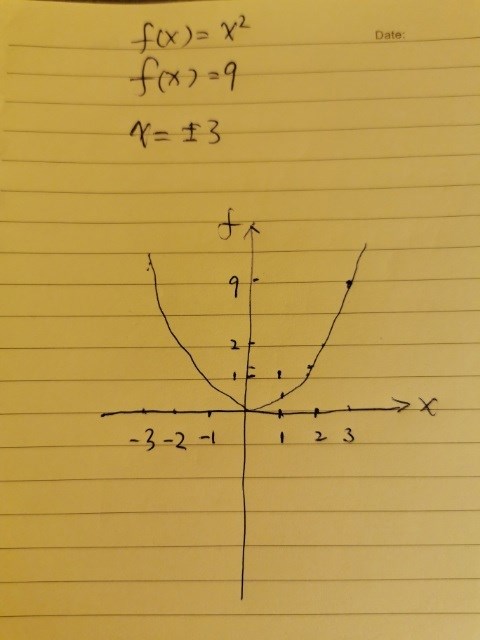 f(x) = x²
Date:
f(x) = 9
x = ±3
f
9
2
1
x
-3 -2 -1 1 2 3